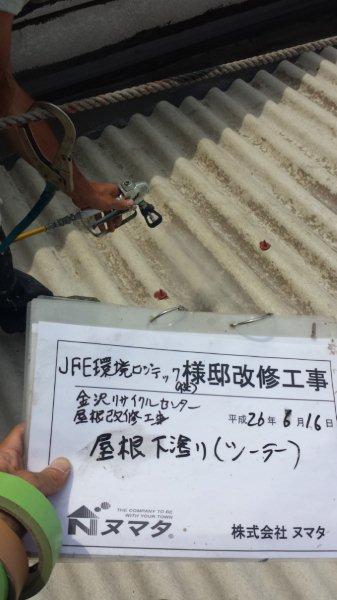 JFE環境ロジテック(株)様邸改修工事
金沢リサイクルセンター
屋根改修工事
平成26年6月16日
屋根下塗り(シーラー)
THE COMPANY TO BE
WITH YOUR TOWN
ヌマタ
株式会社 ヌマタ